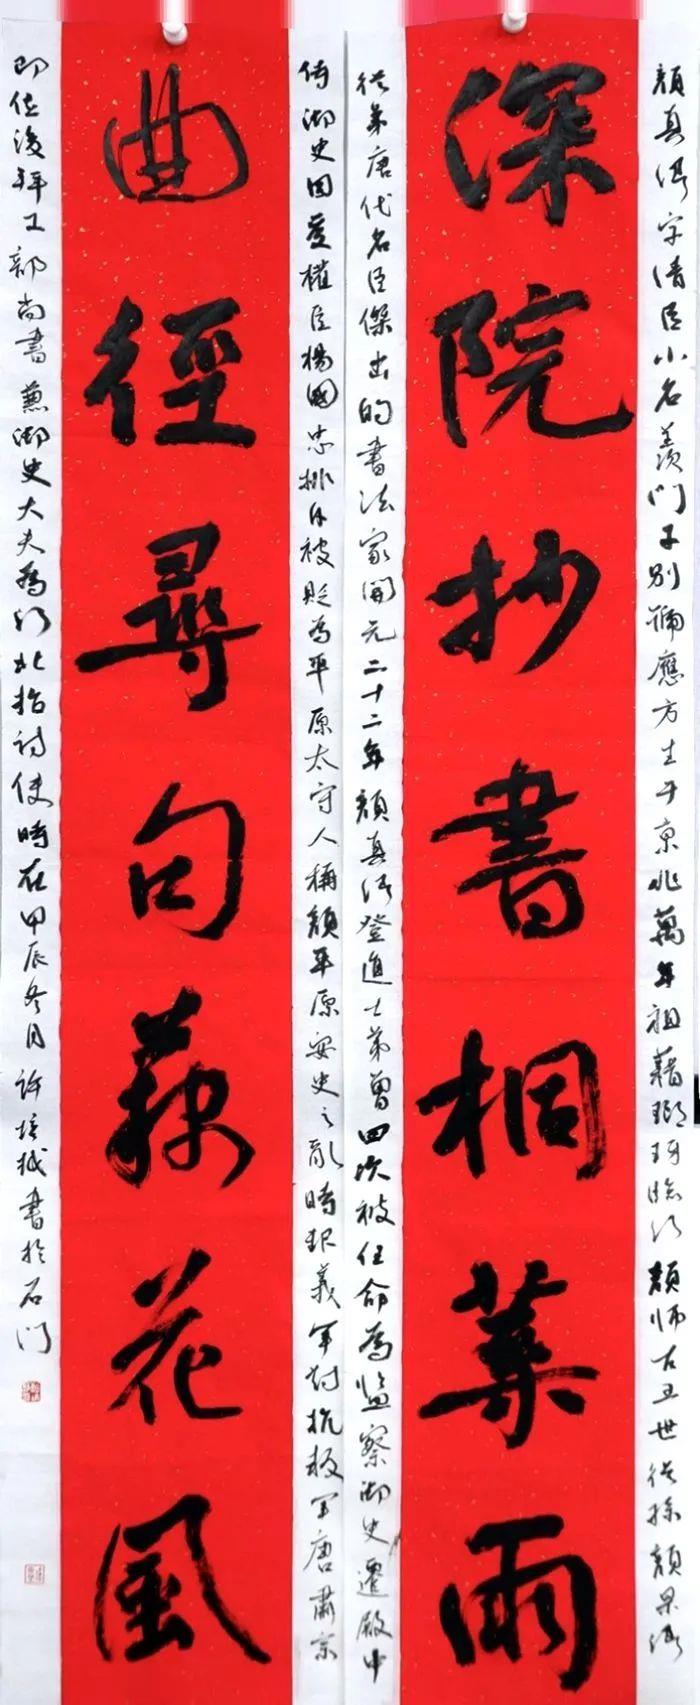 深院抄書桐葉雨
曲徑尋句藕花風
顏真卿字清臣小名羡門子别號應方生于京兆萬年祖藉瑯玡臨沂顏師古五世從孫顏杲卿
從弟唐代名臣傑出的書法家開元二十二年顏真卿登進士第曾四次被任命為監察御史遷殿中
侍御史因受權臣楊國忠排斥被貶為平原太守人稱顏平原安史之亂時率義軍對抗叛軍唐肅宗
即位後拜工部尚書兼御史大夫為河北招討使時在甲辰冬月許培城書於石門